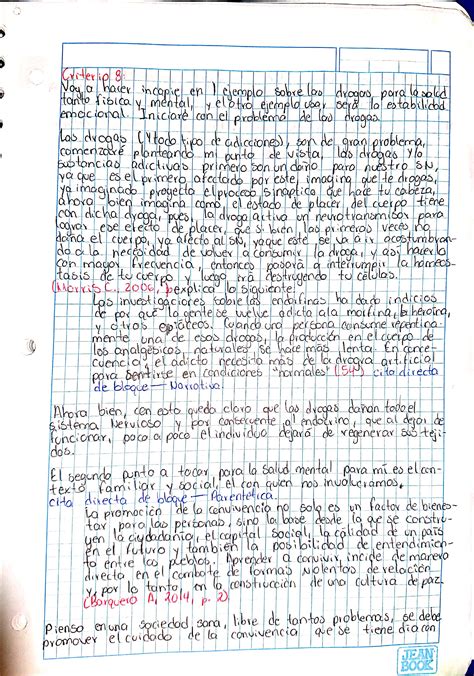 Criterio 8:
Voy a hacer incapie en 1 ejemplo sobre las drogas, para la salud
tanto fisica y mental, y el otro ejemplo usar sera la estabilidad
emocional. Iniciaré con el problema de las drogas.
Las drogas (Y todo tipo de adicciones), son de gran problema,
comenzaré planteando mi punto de vista, las drogas y/o
sustancias adictivas primero son un daño para nuestro SN,
ya que es el primero afectado por este, imagina que te drogas,
ya imaginado proyecta el proceso sinaptico que hace tu cabeza,
ahora bien imagina como, el estado de placer del cuerpo tiene
con dicha droga, pues, la droga activa un neurotransmisor para
lograr ese efecto de placer, que si bien las primeras veces no
daña el cuerpo, ya afecto al SN, ya que este se va a ir acostumbran-
do a la necesidad de volver a consumir la droga, y asi hacerlo
con mayor frecuencia, entonces pasará a interrumpir la homeos-
tasis de tu cuerpo y luego irá destruyendo tu células.
(Morris C., 2006, explica lo siguiente:
Las investigaciones sobre las endorfinas ha dado indicios
de por qué la gente se vuelve adicta a la morfina, la heroína,
y otros opiáceos. Cuando una persona consume repentina-
mente una de esas drogas, la producción en el cuerpo de
los analgésicos naturales se hace más lenta. En conse
cuencia, el adicto necesita más de la drogra artificial
para sentirse en condiciones "normales" (54) cita directa
de bloque — Narrativa.
Ahora bien, con esto queda claro que las drogas dañan todo el
sistema Nervioso y por consecuente al endocrino, que al dejar de
funcionar, poco a poco el individuo dejará de regenerar sus teji-
dos.
El segundo punto a tocar, para la salud mental para mí es el con-
texto familiar y social, el con quien nos involucramos.
cita directa de bloque — Parentetica.
La promoción de la convivencia no solo es un factor de bienes-
tar para las personas, sino la base desde la que se constru-
yen la ciudadanía, el capital social, la calidad de un país
en el futuro y también la posibilidad de entendimien-
to entre los pueblos. Aprender a convivir incide de manera
directa en el combate de formas violentas de relación
y, por lo tanto, en la construcción de una cultura de paz.
(Barquero A, 2014, p. 2)
Pienso en una sociedad, sana, libre de tantos problemas, se debe
promover el cuidado de la convivencia que se tiene dia con
JEAN
BOOK